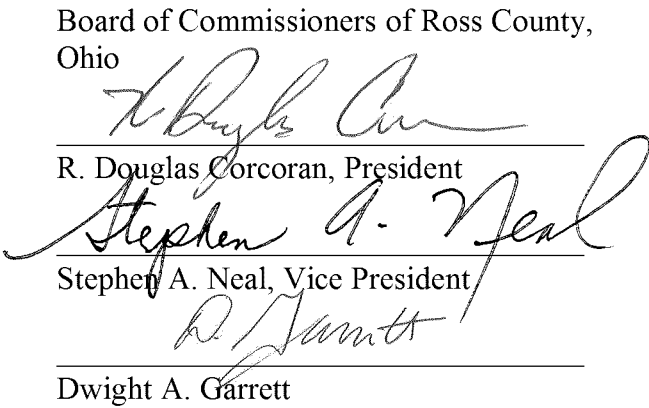 Board of Commissioners of Ross County,
Ohio
R. Douglas Cor
R. Douglas Corcoran, President
Stephen A. Neal
Stephen A. Neal, Vice President
D. Garrett
Dwight A. Garrett